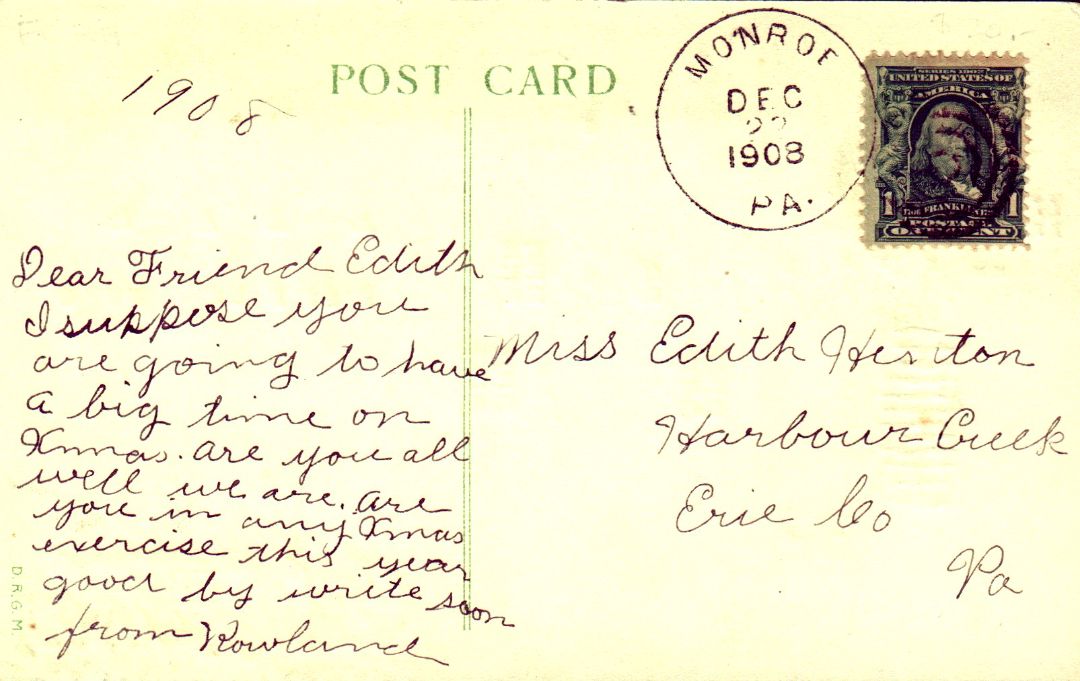 1908
POST CARD
MONROE
DEC
22
1908
PA.
SERIES 1902
UNITED STATES OF
AMERICA
1 FRANKLIN 1
POSTAGE
ONE CENT
Dear Friend Edith
I suppose you
are going to have
a big time on
Xmas. are you all
well we are. are
you in any Xmas
exercise this year
good by write soon
from Rowland
Miss Edith Henton
Harbour Creek
Erie Co
Pa
D.R.G.M.